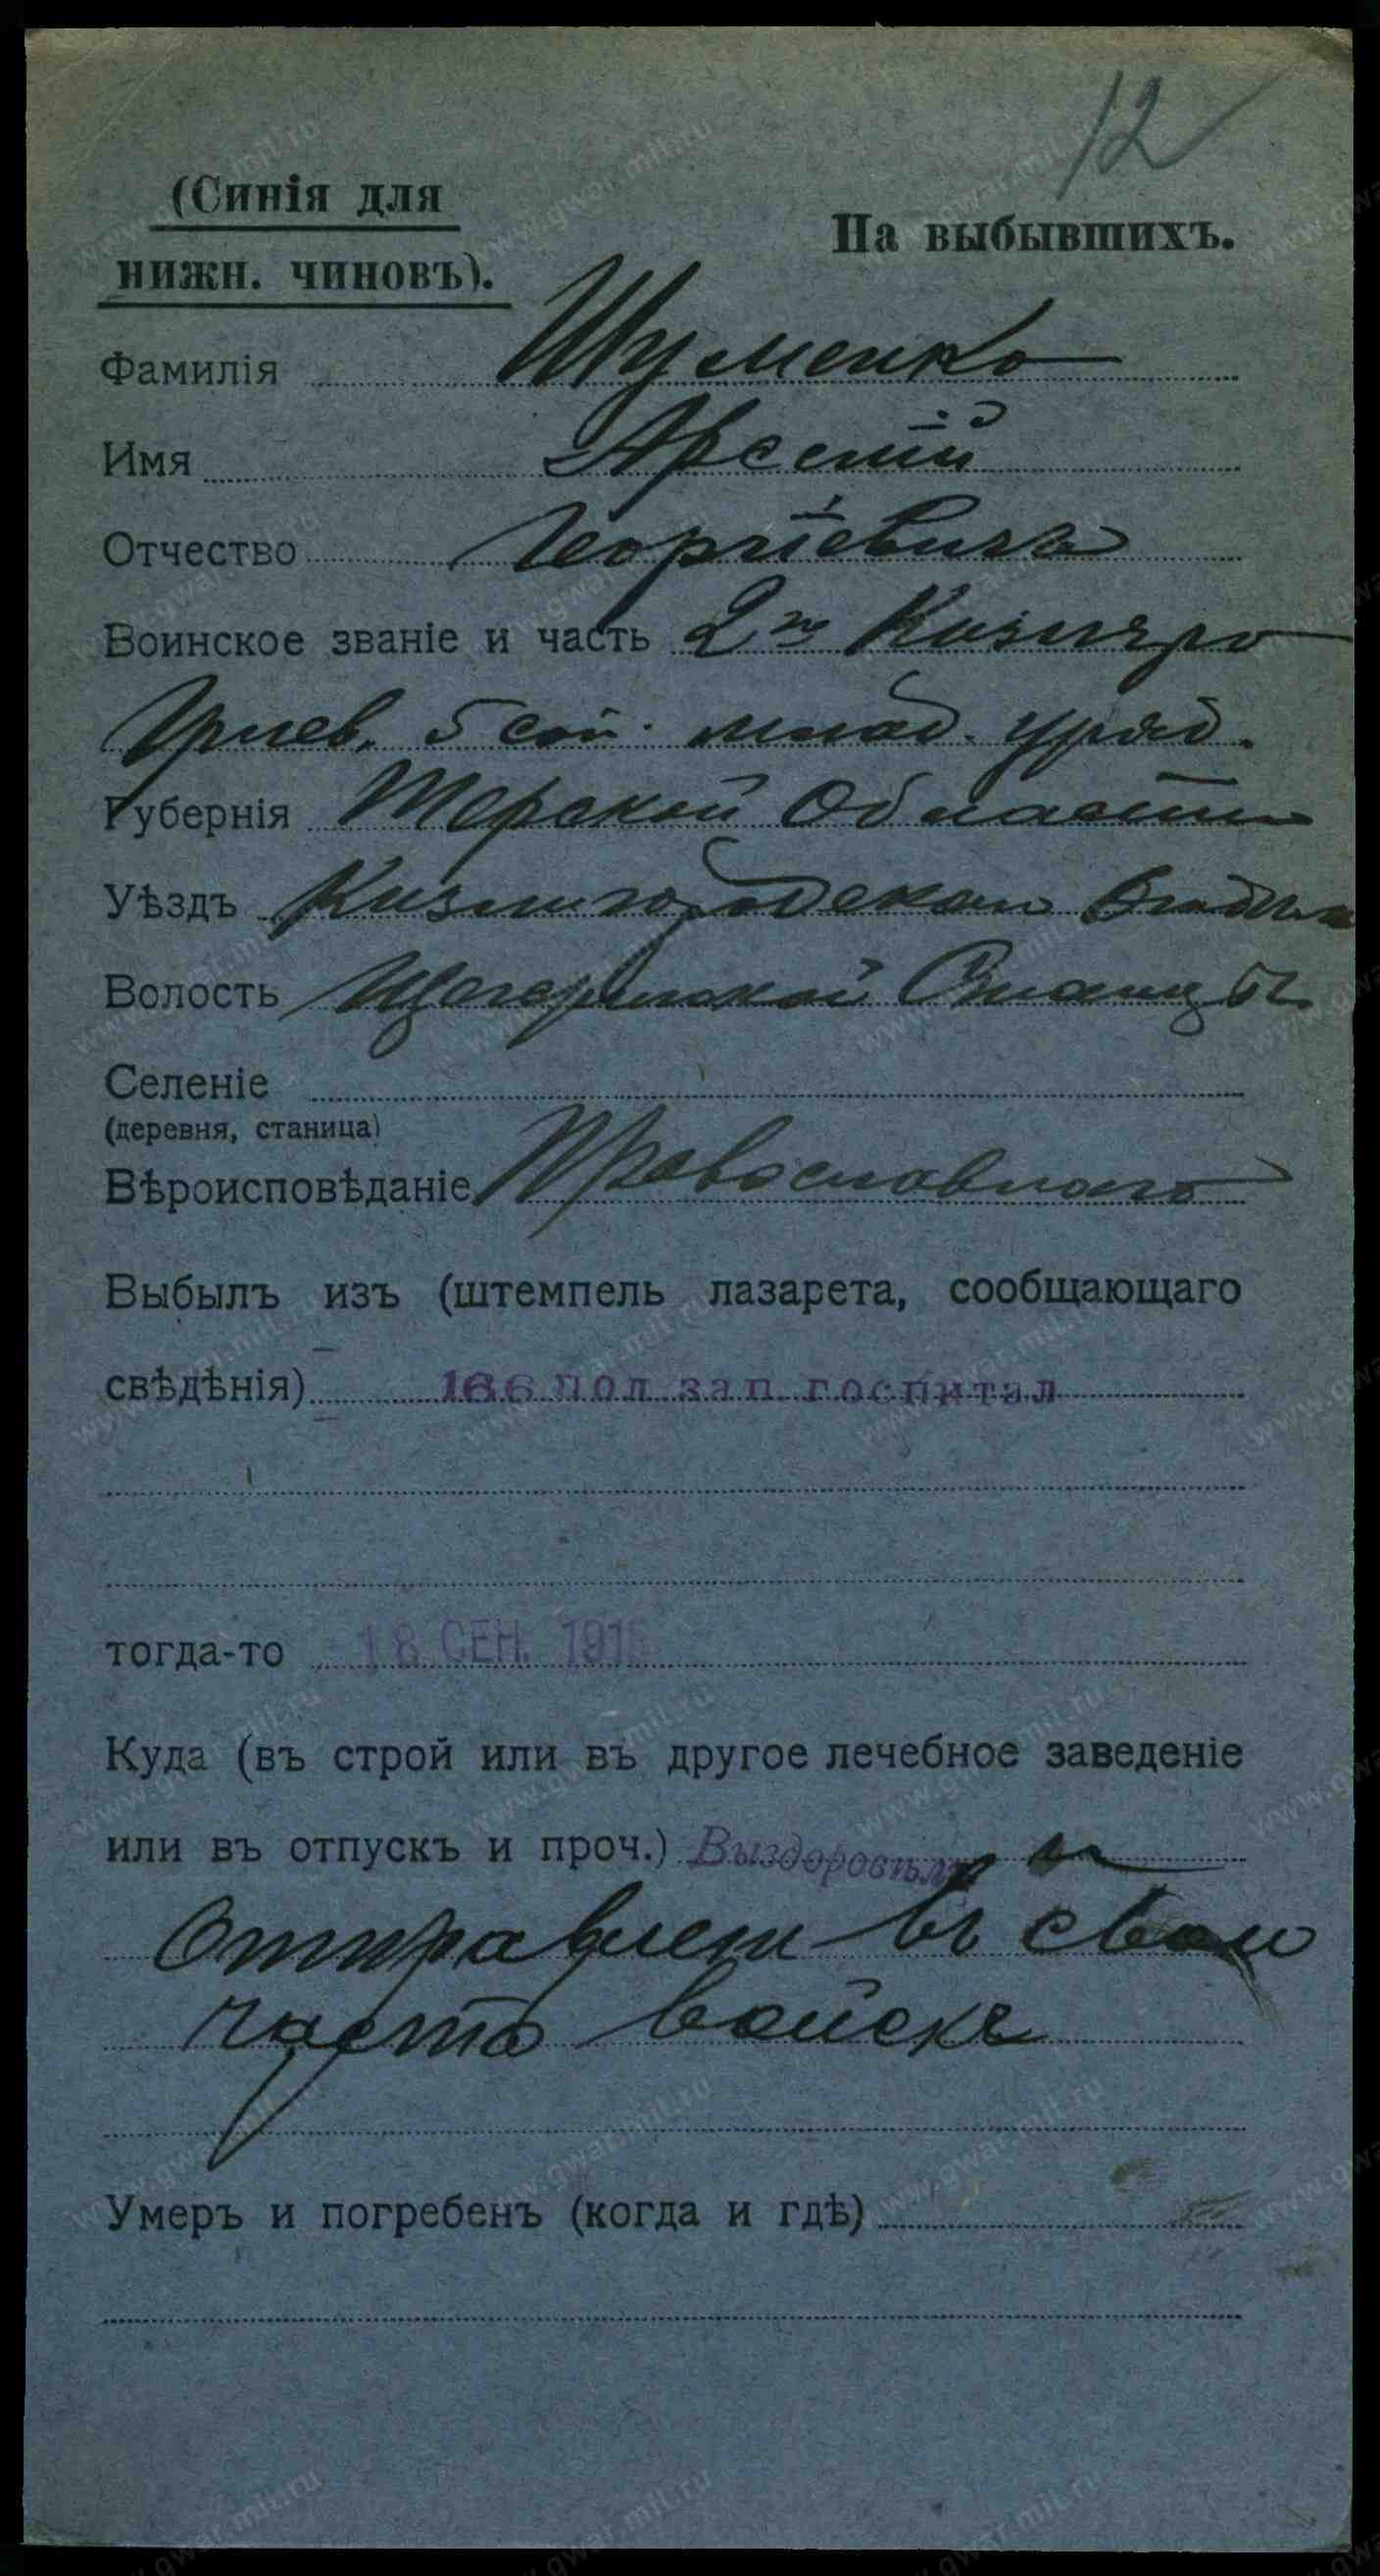 12
(Синія для
На выбывшихъ.
нижн. чиновъ).
Фамилія Шуменко
Имя Арсеній
Отчество Георгіевичъ
Воинское званіе и часть 2го Кизляро
Гребен. 5 сот. млад. уряд.
Губернія Терской Области
Уѣздъ
Волость
Селеніе
(деревня, станица)
Вѣроисповѣданіе Православнаго
Выбылъ изъ (штемпель лазарета, сообщающаго
свѣдѣнія) 166 пол зап госпитал
тогда-то 18 СЕН.
Куда (въ строй или въ другое лечебное заведеніе
или въ отпускъ и проч.) Выздоровѣлъ и
отправлен въ свою
часть войскъ
Умеръ и погребенъ (когда и гдѣ)